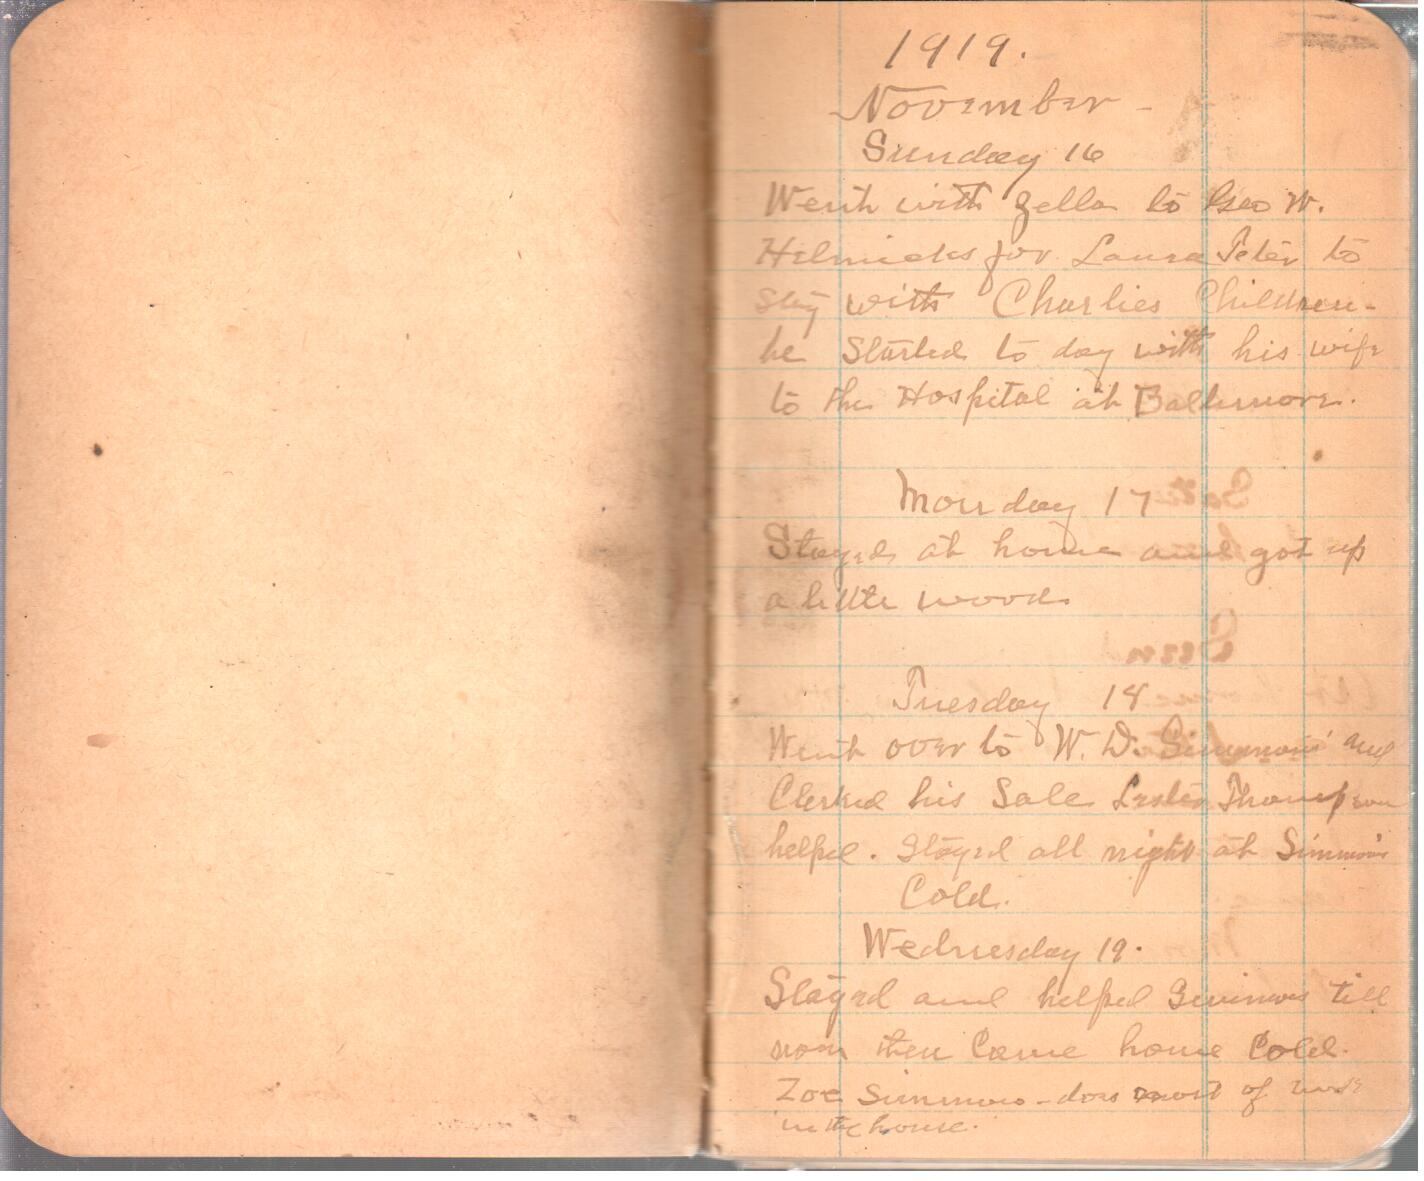 1919.
November -
Sunday 16
Went with Zella to Geo W.
Helmicks for Laura Teter to
stay with Charlies Children -
he Started to day with his wife
to the Hospital at Baltimore.
Monday 17
Stayed at home and got up
a little wood
Tuesday 18
Went over to W. D. Simmons' and
Clerked his Sale Lester Thompson
helped. Stayed all night at Simmons
Cold.
Wednesday 19.
Stayed and helped Simmons till
noon then Came home Cold.
Zoe Simmons - does most of work
in the house.